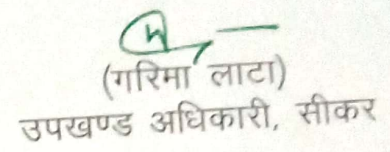 (गरिमा लाटा)
उपखण्ड अधिकारी, सीकर